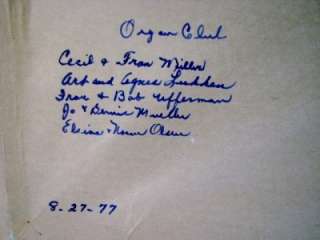 Organ Club
Cecil & Fran Miller
Art and Agnes
Fran & Bob Ufferman
Jo & Bernie Mueller
Elsine & Norm Olsen
8-27-77